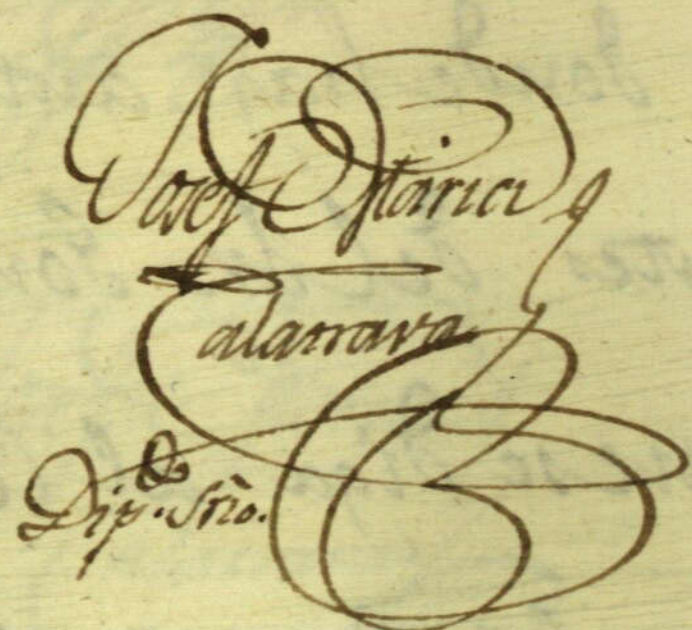 Josef María
Calatrava
Dip.do Srio.